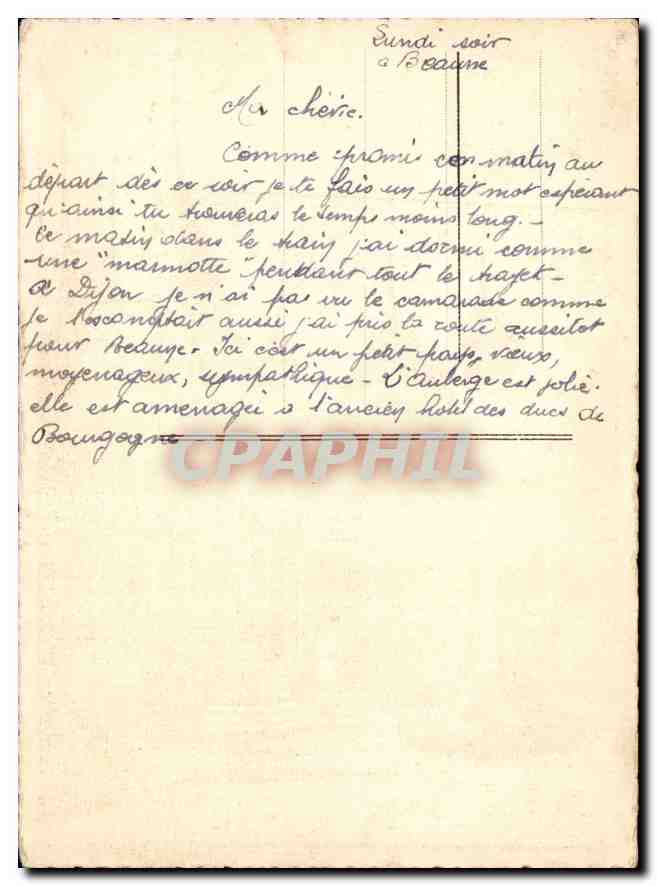 Lundi soir
à Beaune
Ma chérie.
Comme promis ce matin au
départ dès ce soir je te fais un petit mot espérant
qu'ainsi tu trouveras le temps moins long. -
Ce matin dans le train j'ai dormi comme
une "marmotte" pendant tout le trajet -
à Dijon je n'ai pas vu le camarade comme
je l'escomptait aussi j'ai pris la route aussitot
pour Beaune - Ici c'est un petit pays, vieux,
moyenageux, sympathique - L'auberge est jolie.
elle est aménagée à l'ancien hotel des ducs de
Bourgogne
CPAPHIL